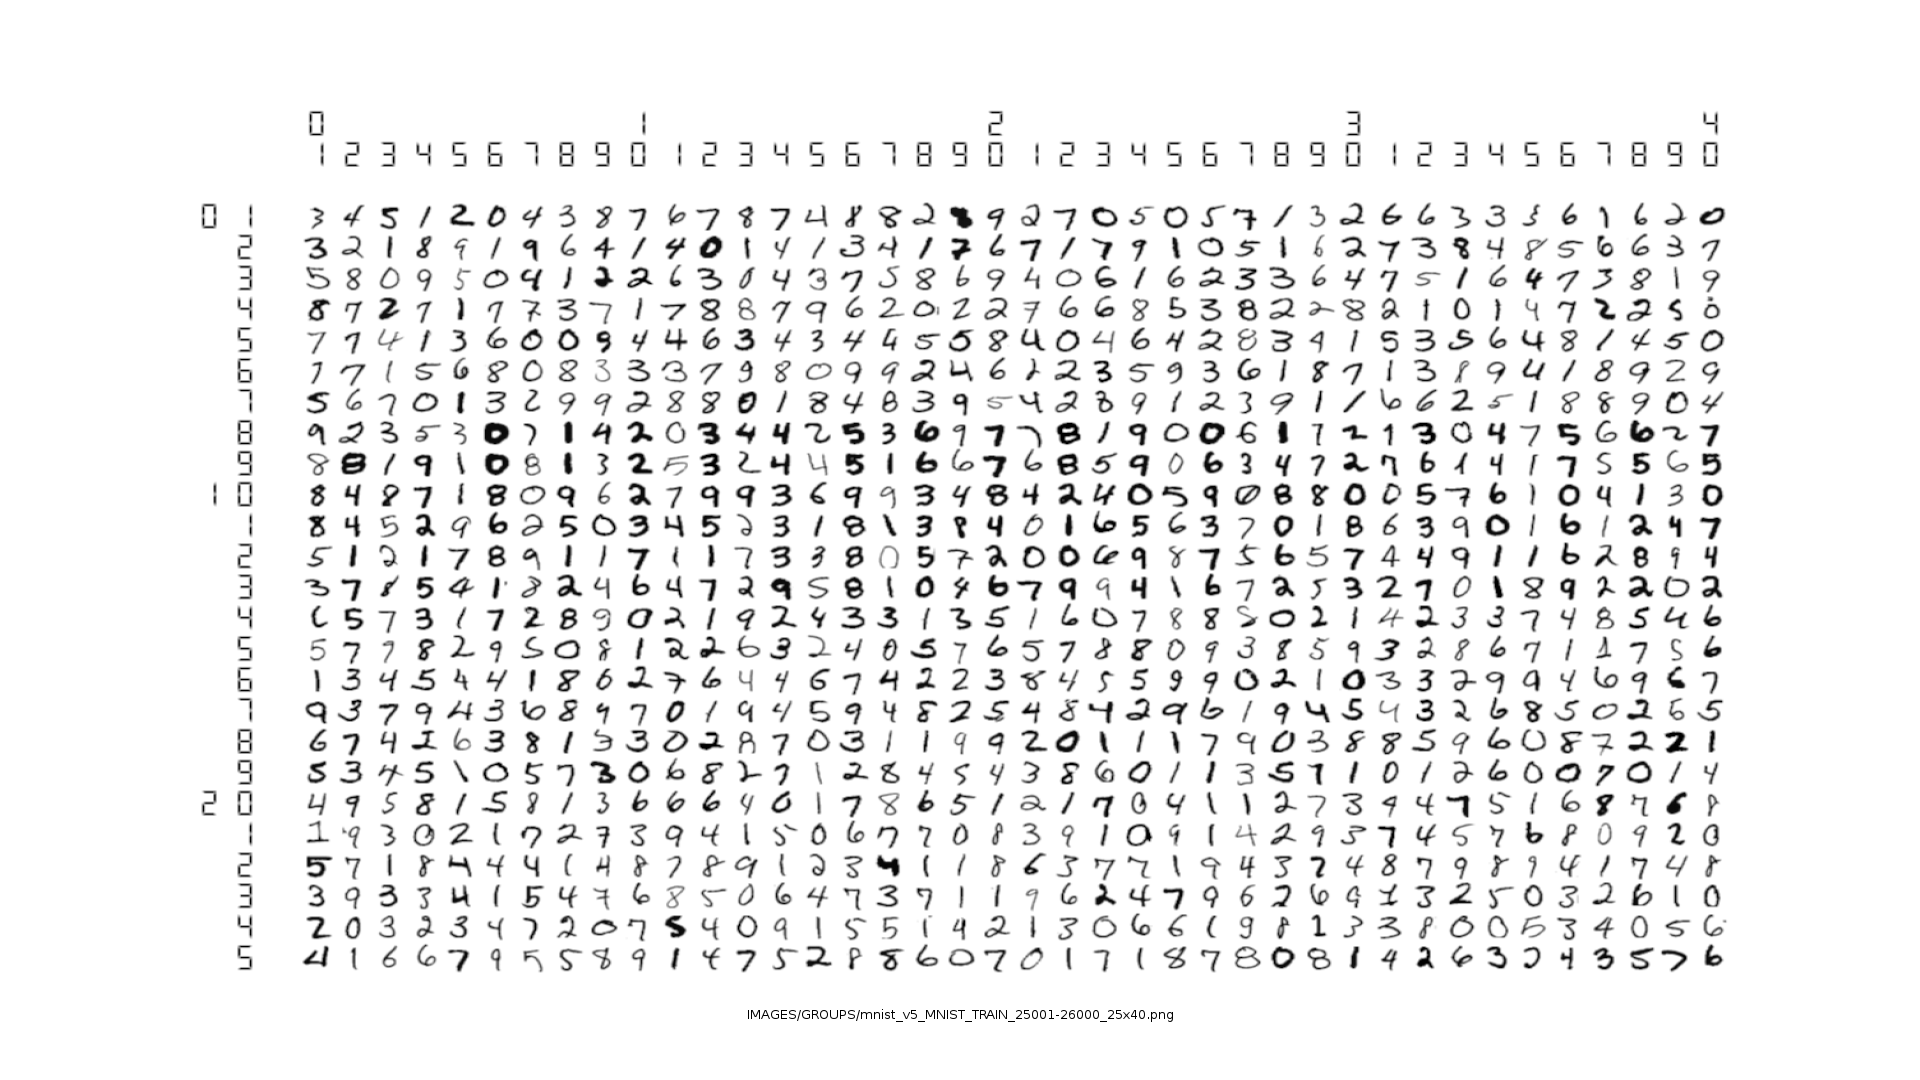 0 1 2 3 4
1 2 3 4 5 6 7 8 9 0 1 2 3 4 5 6 7 8 9 0 1 2 3 4 5 6 7 8 9 0 1 2 3 4 5 6 7 8 9 0
0 1 3 4 5 1 2 0 4 3 8 7 6 7 8 7 4 8 8 2 8 9 2 7 0 5 0 5 7 1 3 2 6 6 3 3 3 6 1 6 2 0
2 3 2 1 8 9 1 9 6 4 1 4 0 1 4 1 3 4 1 7 6 7 1 7 9 1 0 5 1 6 2 7 3 8 4 8 5 6 6 3 7
3 5 8 0 9 5 0 4 1 2 2 6 3 0 4 3 7 5 8 6 9 4 0 6 1 6 2 3 3 6 4 7 5 1 6 4 7 3 8 1 9
4 8 7 2 7 1 7 7 3 7 1 7 8 8 7 9 6 2 0 2 2 7 6 6 8 5 3 8 2 2 8 2 1 0 1 4 7 2 2 5 0
5 7 7 4 1 3 6 0 0 9 4 4 6 3 4 3 4 6 5 5 8 4 0 4 6 4 2 8 3 9 1 5 3 5 6 4 8 1 4 5 0
6 7 7 1 5 6 8 0 8 3 3 3 7 9 8 0 9 9 2 4 6 1 2 3 5 9 3 6 1 8 7 1 3 8 9 4 1 8 9 2 9
7 5 6 7 0 1 3 2 9 9 2 8 8 0 1 8 4 8 3 9 5 4 2 8 9 1 2 3 9 1 1 6 6 2 5 1 8 8 9 0 4
8 9 2 3 5 3 0 7 1 4 2 0 3 4 4 2 5 3 6 9 7 7 8 1 9 0 0 6 1 7 2 1 3 0 4 7 5 6 6 2 7
9 8 8 1 9 1 0 8 1 3 2 5 3 2 4 4 5 1 6 6 7 6 8 5 9 0 6 3 4 7 2 7 6 1 4 1 7 5 5 6 5
1 0 8 4 8 7 1 8 0 9 6 2 7 9 9 3 6 9 9 3 4 8 4 2 4 0 5 9 0 8 8 0 0 5 7 6 1 0 4 1 3 0
1 8 4 5 2 9 6 2 5 0 3 4 5 2 3 1 8 1 3 8 4 0 1 6 5 6 3 7 0 1 8 6 3 9 0 1 6 1 2 4 7
2 5 1 2 1 7 8 9 1 1 7 1 1 7 3 3 8 0 5 7 2 0 0 6 9 8 7 5 6 5 7 4 4 9 1 1 6 2 8 9 4
3 3 7 8 5 4 1 8 2 4 6 4 7 2 9 5 8 1 0 4 6 7 9 9 4 1 6 7 2 5 3 2 7 0 1 8 9 2 2 0 2
4 6 5 7 3 1 7 2 8 9 0 2 1 9 2 4 3 3 1 3 5 1 6 0 7 8 8 5 0 2 1 4 2 3 3 7 4 8 5 4 6
5 5 7 7 8 2 9 5 0 8 1 2 2 6 3 2 4 0 5 7 6 5 7 8 8 0 9 3 8 5 9 3 2 8 6 7 1 1 7 5 6
6 1 3 4 5 4 4 1 8 0 2 7 6 4 4 6 7 4 2 2 3 8 4 5 5 9 9 0 2 1 0 3 3 2 9 9 4 6 9 6 7
7 9 3 7 9 4 3 6 8 9 7 0 1 9 4 5 9 4 8 2 5 4 8 4 2 9 6 1 9 4 5 4 3 2 6 8 5 0 2 6 5
8 6 7 4 2 6 3 8 1 3 3 0 2 8 7 0 3 1 1 9 9 2 0 1 1 1 7 9 0 3 8 8 5 9 6 0 8 7 2 2 1
9 5 3 4 5 1 0 5 7 3 0 6 8 2 7 1 2 8 4 5 4 3 8 6 0 1 1 3 5 7 1 0 1 2 6 0 0 7 0 1 4
2 0 4 9 5 8 1 5 8 1 3 6 6 6 4 0 1 7 8 6 5 1 2 1 7 0 4 1 1 2 7 3 9 4 7 5 1 6 8 7 6 8
1 1 9 3 0 2 1 7 2 7 3 9 4 1 5 0 6 7 7 0 8 3 9 1 0 9 1 4 2 9 3 7 4 5 7 6 8 0 9 2 0
2 5 7 1 8 4 4 4 1 4 8 7 8 9 1 2 3 4 1 1 8 6 3 7 7 1 9 4 3 2 4 8 7 9 8 9 4 1 7 4 8
3 3 9 3 3 4 1 5 4 7 6 8 5 0 6 4 7 3 7 1 1 9 6 2 4 7 9 6 2 6 9 1 3 2 5 0 3 2 6 1 0
4 2 0 3 2 3 4 7 2 0 7 5 4 0 9 1 5 5 1 4 2 1 3 0 6 6 1 9 8 1 3 3 8 0 0 5 3 4 0 5 6
5 4 1 6 6 7 9 5 5 8 9 1 4 7 5 2 8 8 6 0 7 0 1 7 1 8 7 8 0 8 1 4 2 6 3 2 4 3 5 7 6
IMAGES/GROUPS/mnist_v5_MNIST_TRAIN_25001-26000_25x40.png